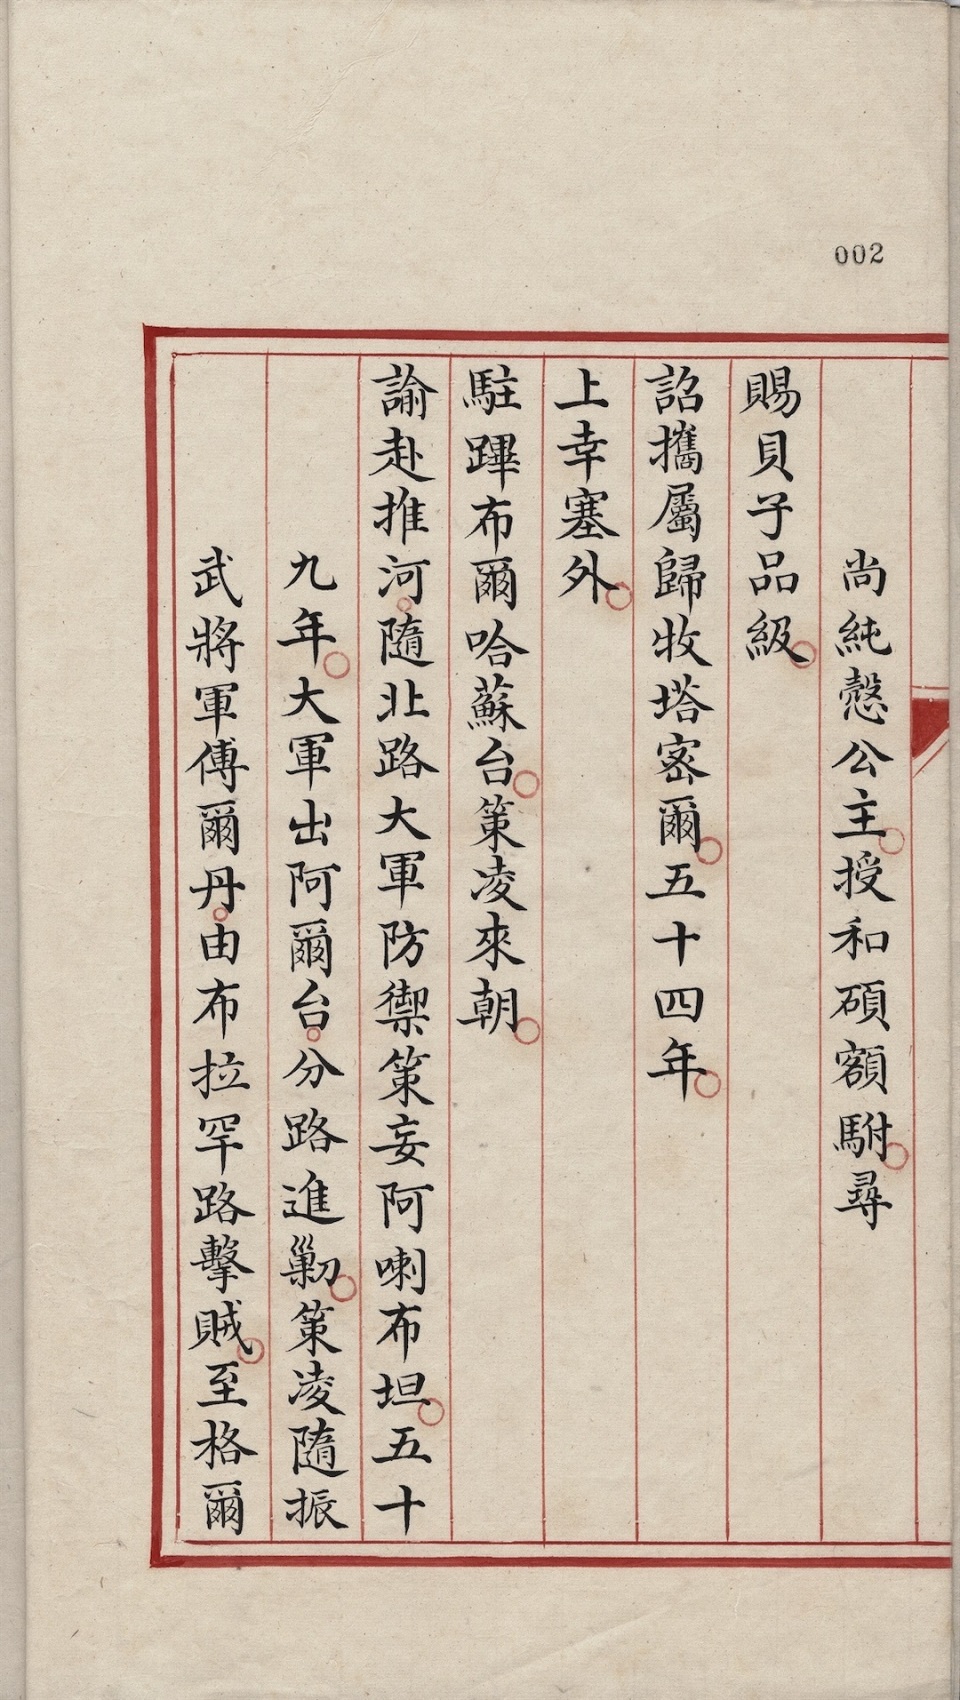 002
尚純慤公主授和碩額駙尋
賜貝子品級
詔攜屬歸牧塔密爾五十四年
上幸塞外
駐蹕布爾哈蘇台策凌來朝
諭赴推河隨北路大軍防禦策妄阿喇布坦五十
九年大軍出阿爾台分路進剿策凌隨振
武將軍傅爾丹由布拉罕路擊賊至格爾